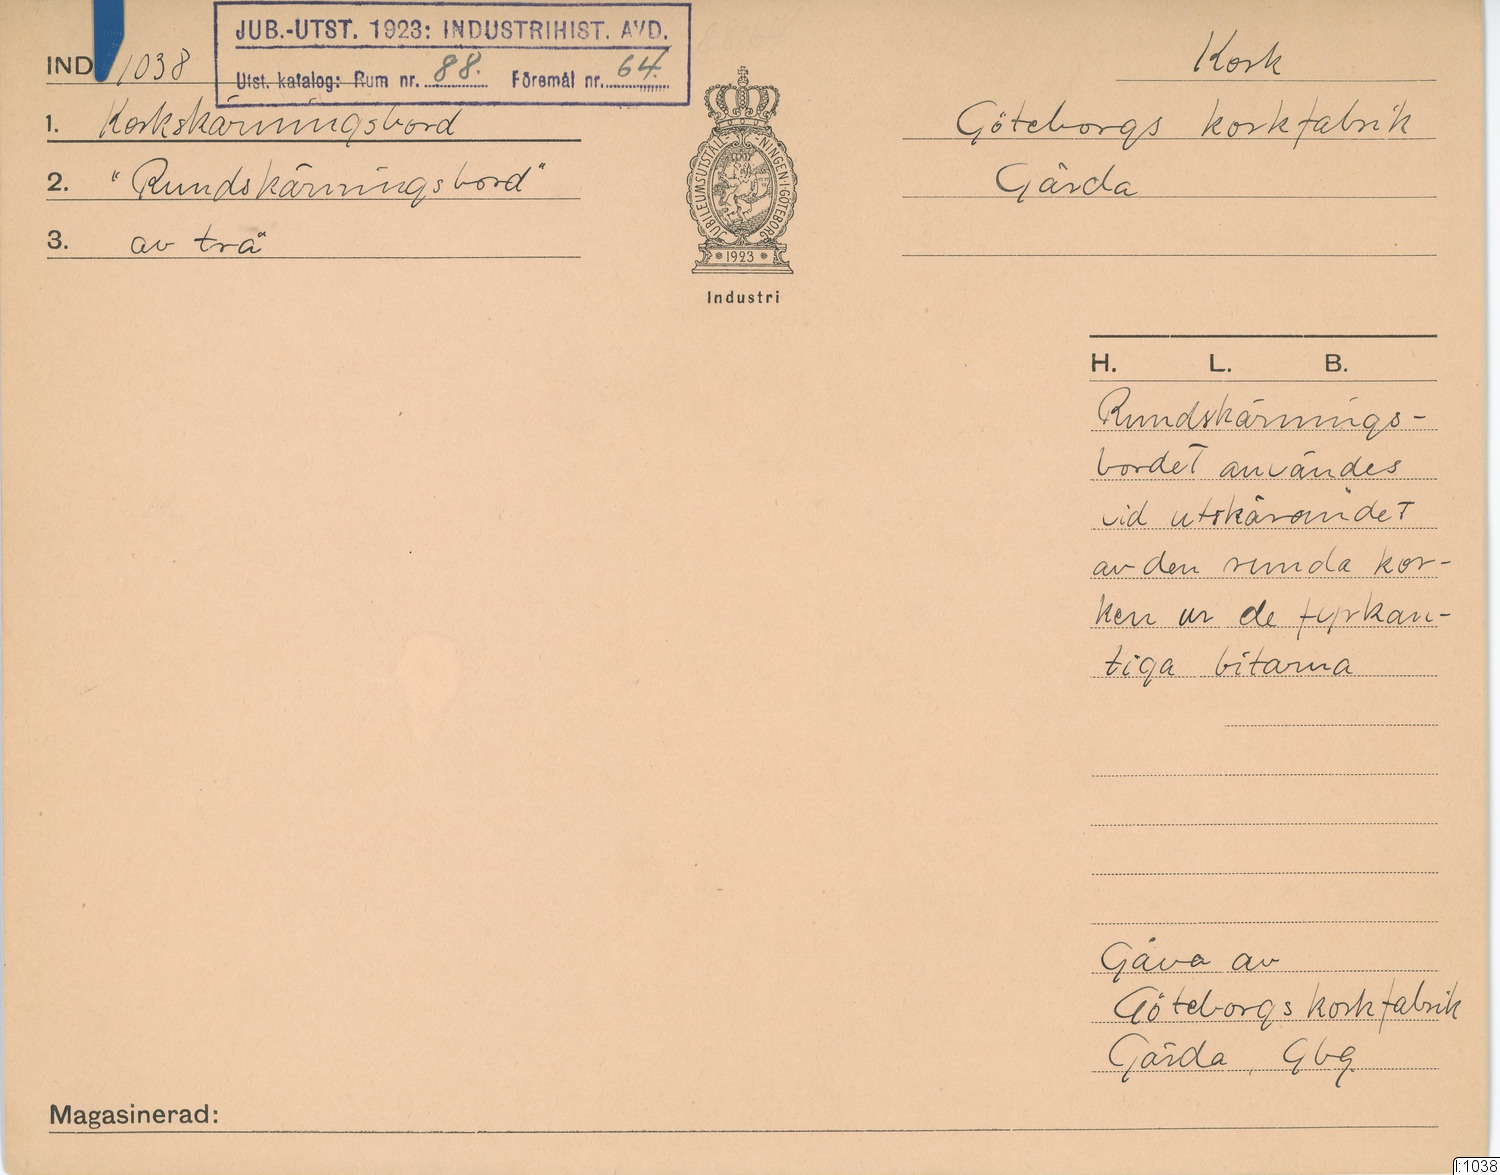 JUB.-UTST. 1923: INDUSTRIHIST. AVD.
Utst. katalog: Rum nr. 88. Föremål nr. 64.
IND 1038
1. Korkskärningsbord
2. "Rundskärningsbord"
3. av trä
JUBILEUMSUTSTÄLLNINGEN·I·GÖTEBORG
1923
Industri
Kork
Göteborgs korkfabrik
Gårda
H. L. B.
Rundskärnings-
bordet användes
vid utskärandet
av den runda kor-
ken ur de fyrkan-
tiga bitarna
Gåva av
Göteborgs korkfabrik
Gårda, Gbg.
Magasinerad:
I:1038